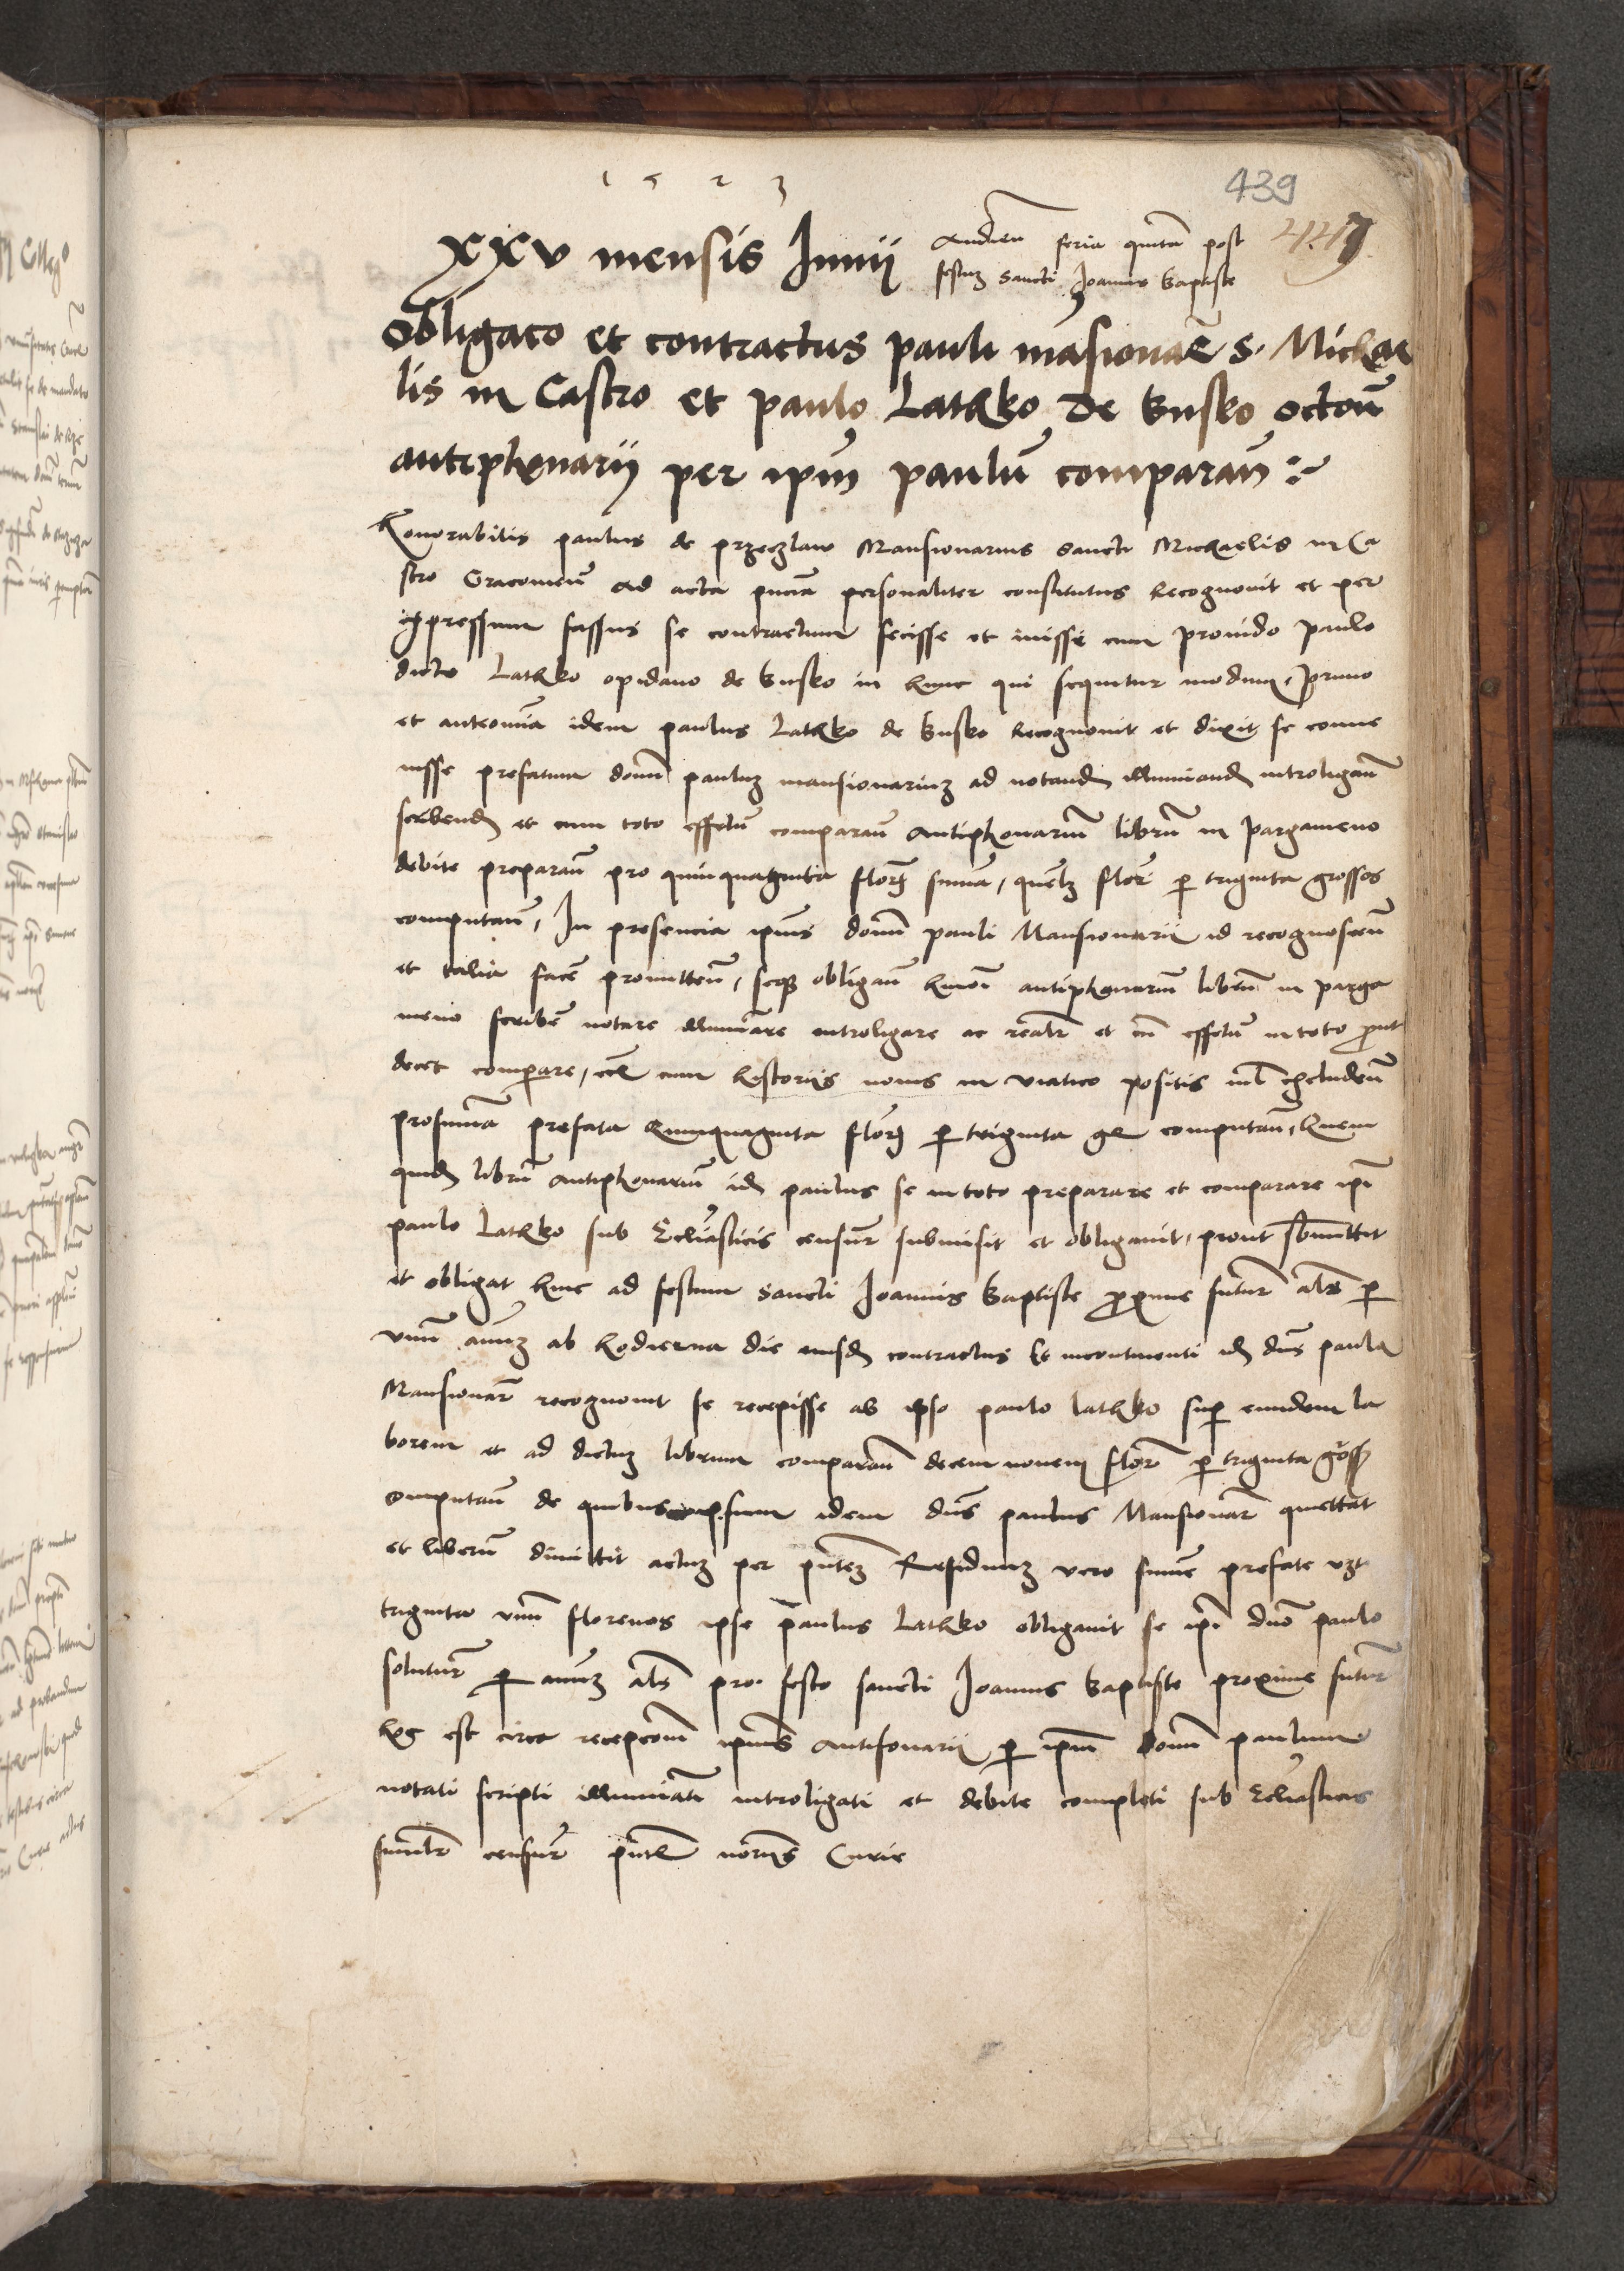 1523
439
449
XXV mensis Junii
Audien feria quinta post
festum sancti Joannis Baptiste
Obligacio et contractus Pauli mansionarii S. Michae
lis in Castro et Paulo Lathko de Busko
antiphonarii per ipm Paulum comparan
Honorabilis Paulus de Przeczlaw Mansionarius sancti Michaelis in Ca
stro Cracovien ad acta pncia personaliter constitutus recognovit et per
expressum fassus se contractum fecisse et inisse cum provido Paulo
dicto Lathko opidano de Busko in hunc qui sequitur modum, Primo
et anteomnia idem Paulus Lathko de Busko recognovit et dixit se conve
nisse prefatum domn Paulum mansionarium ad notand illuminand introligan
scribend et cum toto effectu comparan Antiphonarium librum in pargameno
debite preparan pro quinquaginta floren summa, quemlibet floren per triginta grossos
computan, In presencia ipius domni Pauli Mansionarii id recognoscen
et talia facere promitten, seque obligan antiphonarium librum in parga
meno scribere notare illuminare introligare ac realiter et cum effectu in toto prout
decet comparare, cum historiis novis in viatico positis includen
pro summa prefata quinquaginta floren per triginta gr computan, Quem
quidem librum Antiphonarium idem Paulus se in toto preparare et comparare ipi
Paulo Lathko sub Ecclesiasticis censuris submisit et obligavit, prout submittit
et obligat hinc ad festum sancti Joannis Baptiste proxime futurum alias per
unum annum ab hodierna die eiusdem contractus Et incontinenti idem dns Paulus
Mansionarius recognovit se recepisse ab ipso Paulo Lathko super eundem la
borem et ad dictum librum comparan decem novem floren per triginta gross
computan de quibus ipsum idem dns Paulus Mansionarius quittat
et liberum dimittit actum per pntem Residuum vero summe prefate vzt
triginta unum florenos ipse Paulus Lathko obligavit se ipi dno Paulo
soluturum per annum alias pro festo sancti Joannis Baptiste proxime futur
hoc est circa recepcionem ipius Antifonarii per ipm domn Paulum
notati scripti illuminati introligati et debite completi sub Ecclesiasticis
similiter censuris Curie